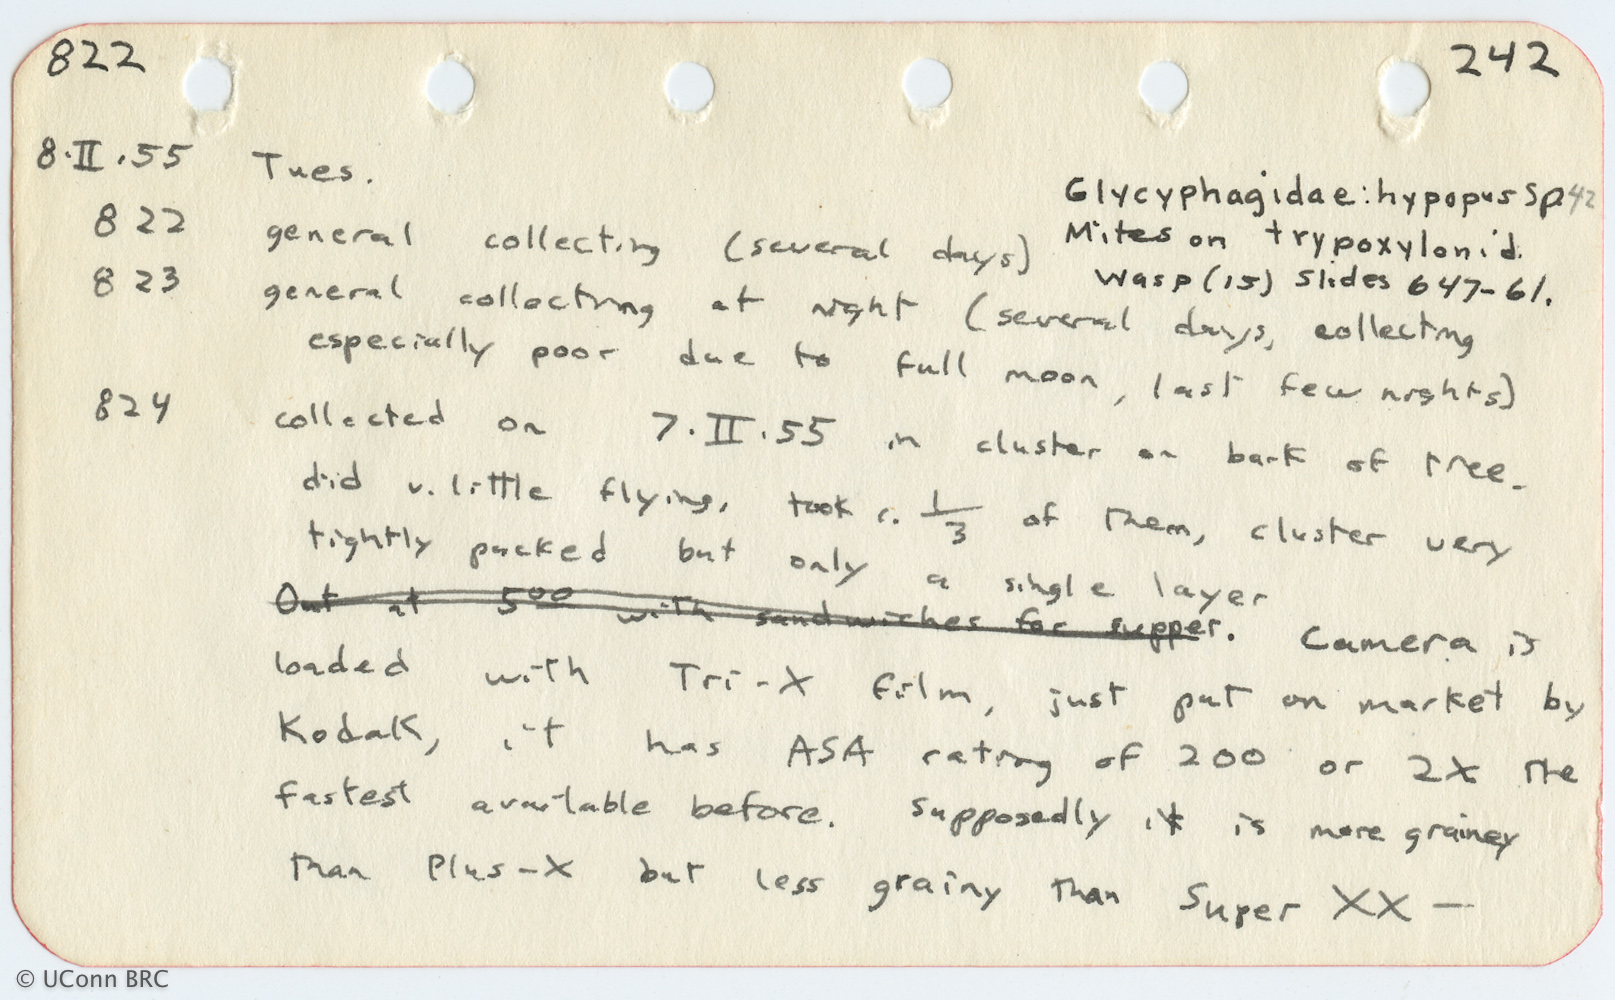 822 242
8.II.55 Tues.
Glycyphagidae: hypopus Sp. 42
Mites on trypoxylonid
Wasp (15) Slides 647-61.
822 general collecting (several days)
823 general collecting at night (several days, collecting
especially poor due to full moon, last few nights)
824 collected on 7.II.55 in cluster on bark of tree.
did v. little flying, took c. 1/3 of them, cluster very
tightly packed but only a single layer
Out at 500 with sandwiches for supper. Camera is
loaded with Tri-X film, just put on market by
Kodak, it has ASA rating of 200 or 2X the
fastest available before. Supposedly it is more grainey
than Plus-X but less grainy than Super XX —
© UConn BRC